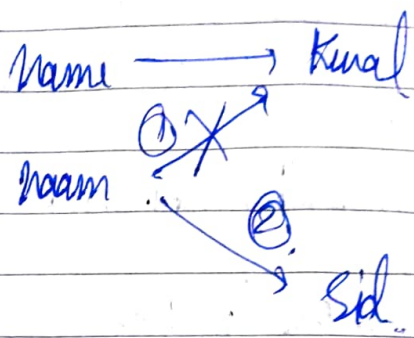 Name → Kunal
①
naam
②
Sid